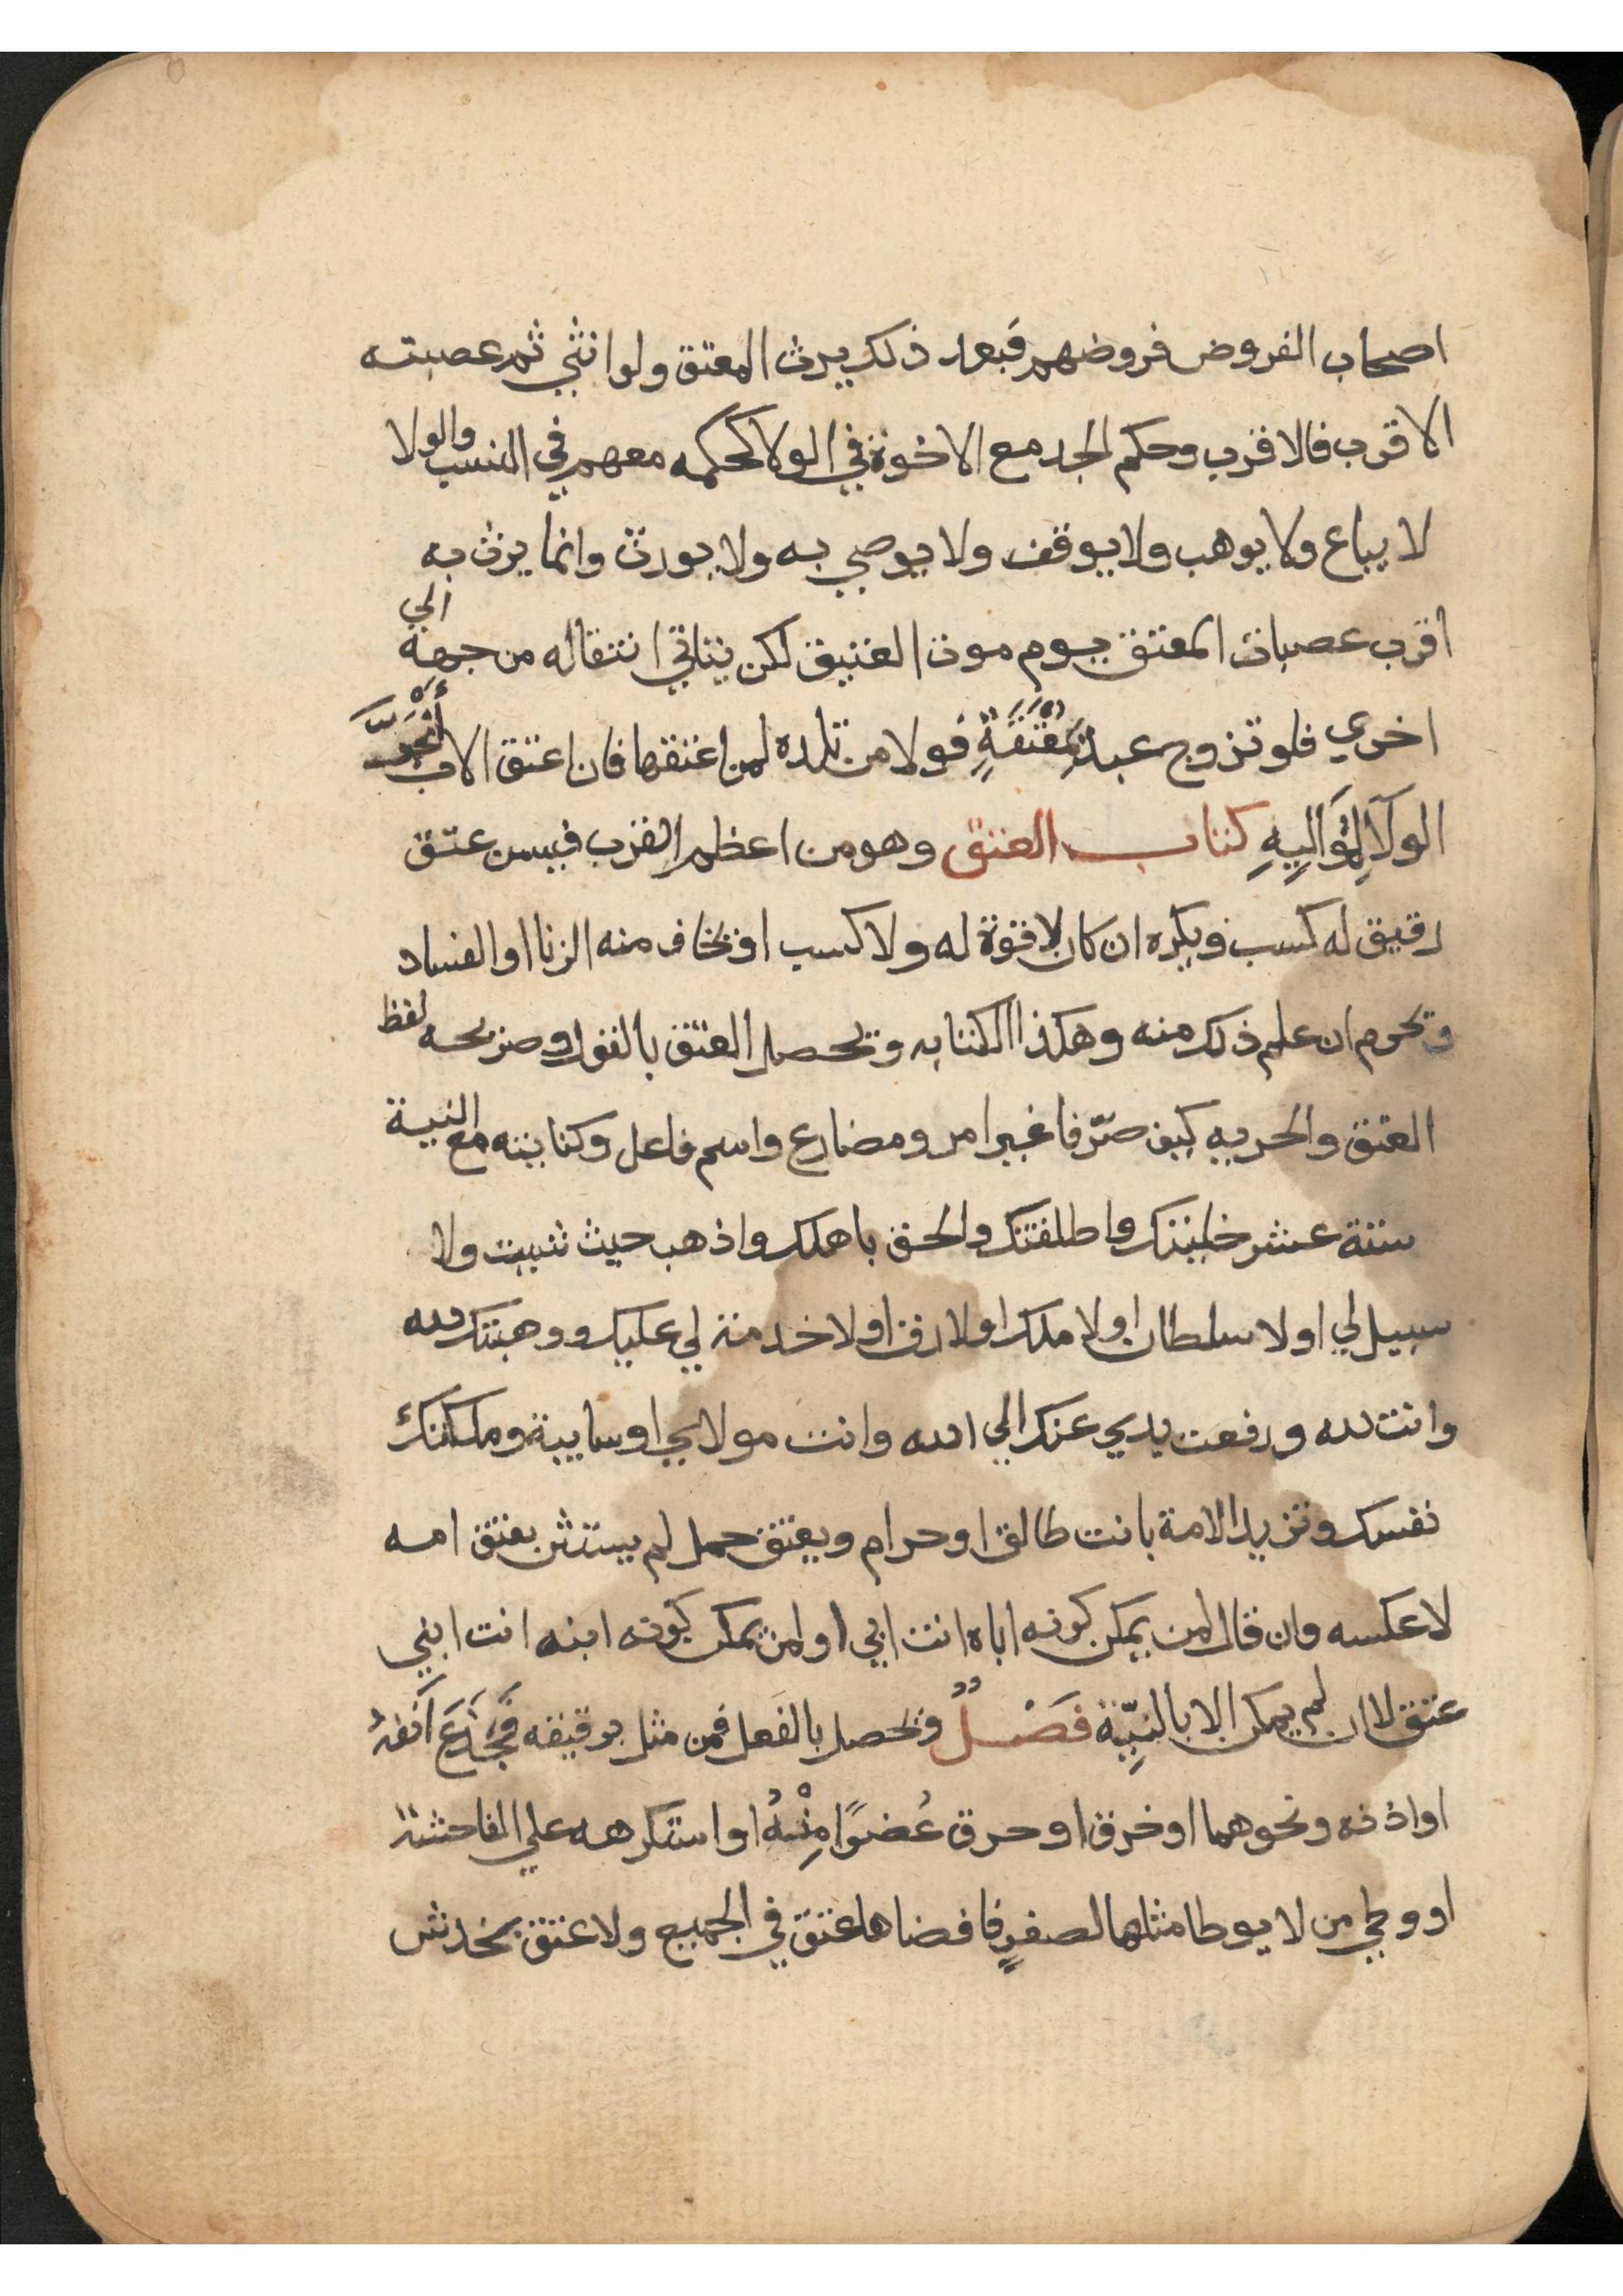 اصحاب الفروض فروضهم فبعد ذلك يرث المعتق ولو انثي ثم عصبته
الاقرب فالاقرب وحكم الجد مع الاخوة في الولا كحكمه معهم في النسب والولا
لا يباع ولا يوهب ولا يوقف ولا يوصي به ولا يورث وانما يرث به
اقرب عصبات المعتق يوم موت العتيق لكن يتاتي انتقاله من جهة الي
اخري فلو تزوج عبد بِمُعْتَقَةٍ فولا من تلده لمن اعتقها فان اعتق الاب أنْجَرَّ
الولآ لِمَوَالِيهِ كتاب العتق وهو من اعظم القرب فيسن عتق
رقيق له كسب ويكره ان كان لا قوة له ولا كسب او يخاف منه الزنا او الفساد
ويحرم ان علم ذلك منه وهكذا الكتابه ويحصل العتق بالقول وصريحه لفظ
العتق والحريه كيف صرّفا غير امر ومضارع واسم فاعل وكنايته مع النية
ستة عشر خليتك واطلقتك والحق باهلك واذهب حيث شيت ولا
سبيل لي او لا سلطان او لا ملك او لا رق او لا خدمة لي عليك ووهبتك لله
وانت لله ورفعت يدي عنك الي الله وانت مولاي او سايبة وملكتك
نفسك وتزيد الامة بانت طالق او حرام ويعتق حمل لم يستثن بعتق امه
لا عكسه وان قال لمن يمكن كونه اباه انت ابي او لمن يمكن كونه ابنه انت ابني
عتق لا ان لم يمكن الا بالنِيّة فَصْلٌ ويحصل بالفعل فمن مثل برقيقه فَجَدَعَ اَنفهُ
او اذنه ونحوهما او خرق او حرق عُضوًا مِنْهُ او استكرهه علي الفاحشة
او وطي من لا يوطا مثلها لصغرٍ فافضاها عتق في الجميع ولا عتق بخدش